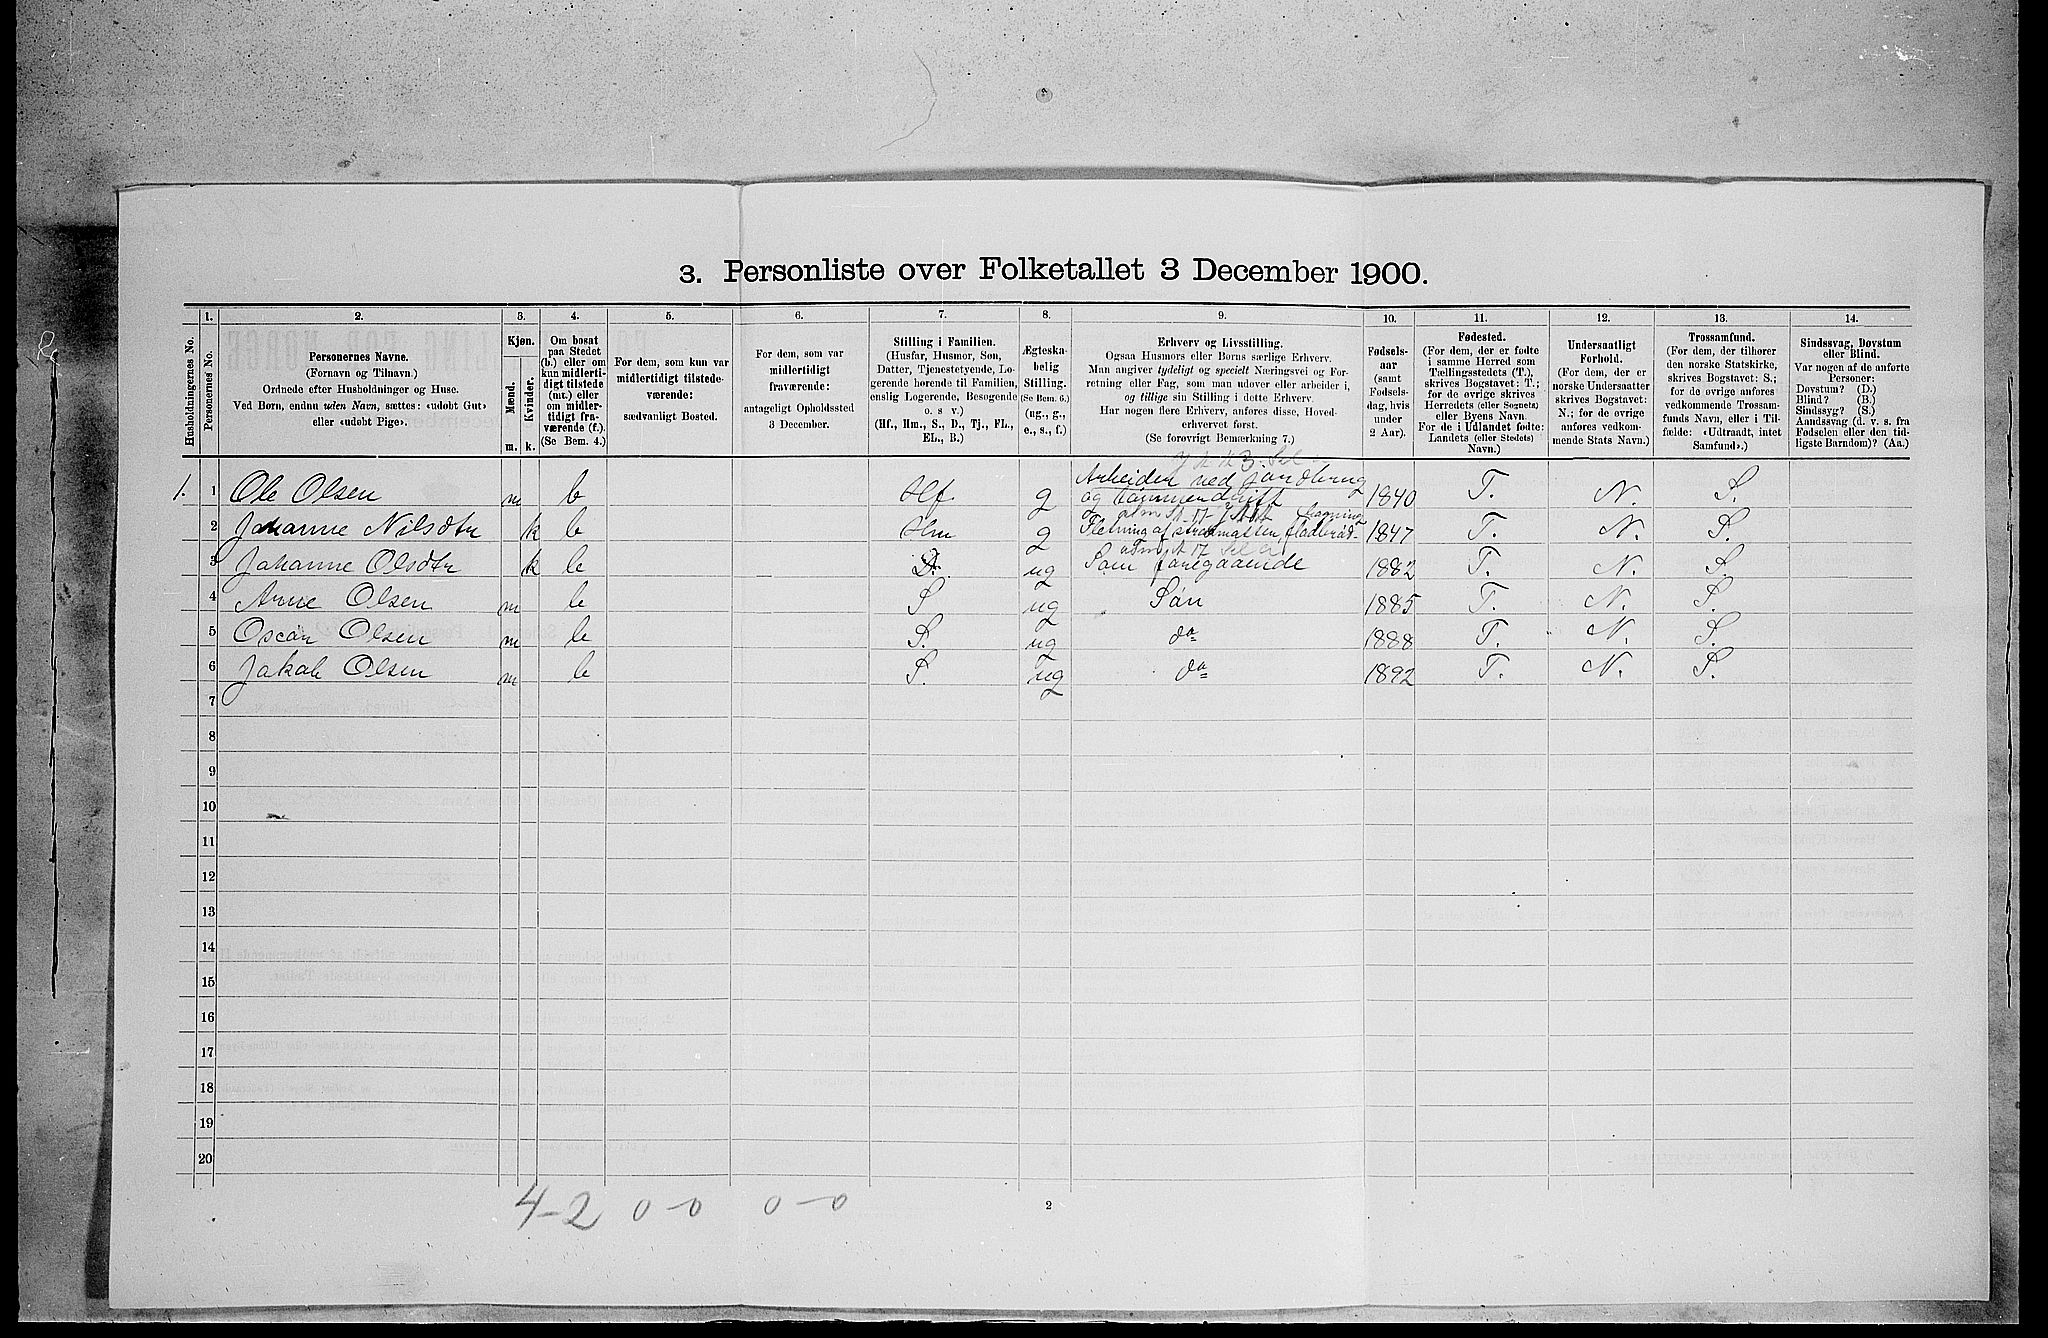 3. Personliste over Folketallet 3 December 1900.
1. 2. 3. 4. 5. 6. 7. 8. 9. 10. 11. 12. 13. 14.
Husholdningernes No.
Personernes No.
Personernes Navne.
(Fornavn og Tilnavn.)
Ordnede efter Husholdninger og Huse.
Ved Børn, endnu uden Navn, sættes: «udøbt Gut»
eller «udøbt Pige».
Kjøn.
Mænd.
Kvinder.
m. k.
Om bosat
paa Stedet
(b.) eller om
kun midlerti-
digt tilstede
(mt.) eller
om midler-
tidigt fra-
værende (f.).
(Se Bem. 4.)
For dem, som kun var
midlertidigt tilstede-
værende:
sædvanligt Bosted.
For dem, som var
midlertidigt
fraværende:
antageligt Opholdssted
3 December.
Stilling i Familien.
(Husfar, Husmor, Søn,
Datter, Tjenestetyende, Lo-
gerende hørende til Familien,
enslig Logerende, Besøgende
o. s v.)
(Hf., Hm., S., D., Tj., FL.,
EL., B.)
Ægteska-
belig
Stilling.
(Se Bem. 6.)
(ug., g.,
e., s., f.)
Erhverv og Livsstilling.
Ogsaa Husmors eller Børns særlige Erhverv.
Man angiver tydeligt og specielt Næringsvei og For-
retning eller Fag, som man udover eller arbeider i,
og tillige sin Stilling i dette Erhverv.
Har nogen flere Erhverv, anføres disse, Hoved-
erhvervet først.
(Se forøvrigt Bemærkning 7.)
Fødsels-
aar
(samt
Fødsels-
dag, hvis
under
2 Aar).
Fødested.
(For dem, der er fødte
i samme Herred som
Tællingsstedets (T.),
skrives Bogstavet: T.;
for de øvrige skrives
Herredets (eller Sognets)
eller Byens Navn.
For de i Udlandet fødte:
Landets (eller Stedets)
Navn.)
Undersaatligt
Forhold.
(For dem, der er
norske Undersaatter
skrives Bogstavet:
N.; for de øvrige
anføres vedkom-
mende Stats Navn.)
Trossamfund.
(For dem, der tilhører
den norske Statskirke,
skrives Bogstavet: S.;
for de øvrige anføres
vedkommende Trossam-
funds Navn, eller i Til-
fælde: «Udtraadt, intet
Samfund».)
Sindssvag, Døvstum
eller Blind.
Var nogen af de anførte
Personer:
Døvstum? (D.)
Blind? (B.)
Sindssyg? (S.)
Aandssvag (d. v. s. fra
Fødselen eller den tid-
ligste Barndom)? (Aa.)
1. 1 Ole Olsen m b Hf. g Arbeider ved Jordbrug og Tømmerdrift 1840 T. N. S.
2 Johanne Nilsdtr k b Hm g Fletning af straamatter, fladbrød- bagning 1847 T. N. S.
3 Johanne Olsdtr k b D. ug Som foregaaende 1882 T. N. S.
4 Arne Olsen m b S ug Søn 1885 T. N. S.
5 Oscar Olsen m b S. ug do 1888 T. N. S.
6 Jakob Olsen m b S. ug do 1892 T. N. S.
7
8
9
10
11
12
13
14
15
16
17
18
19
20
4-2 0-0 0-0
2